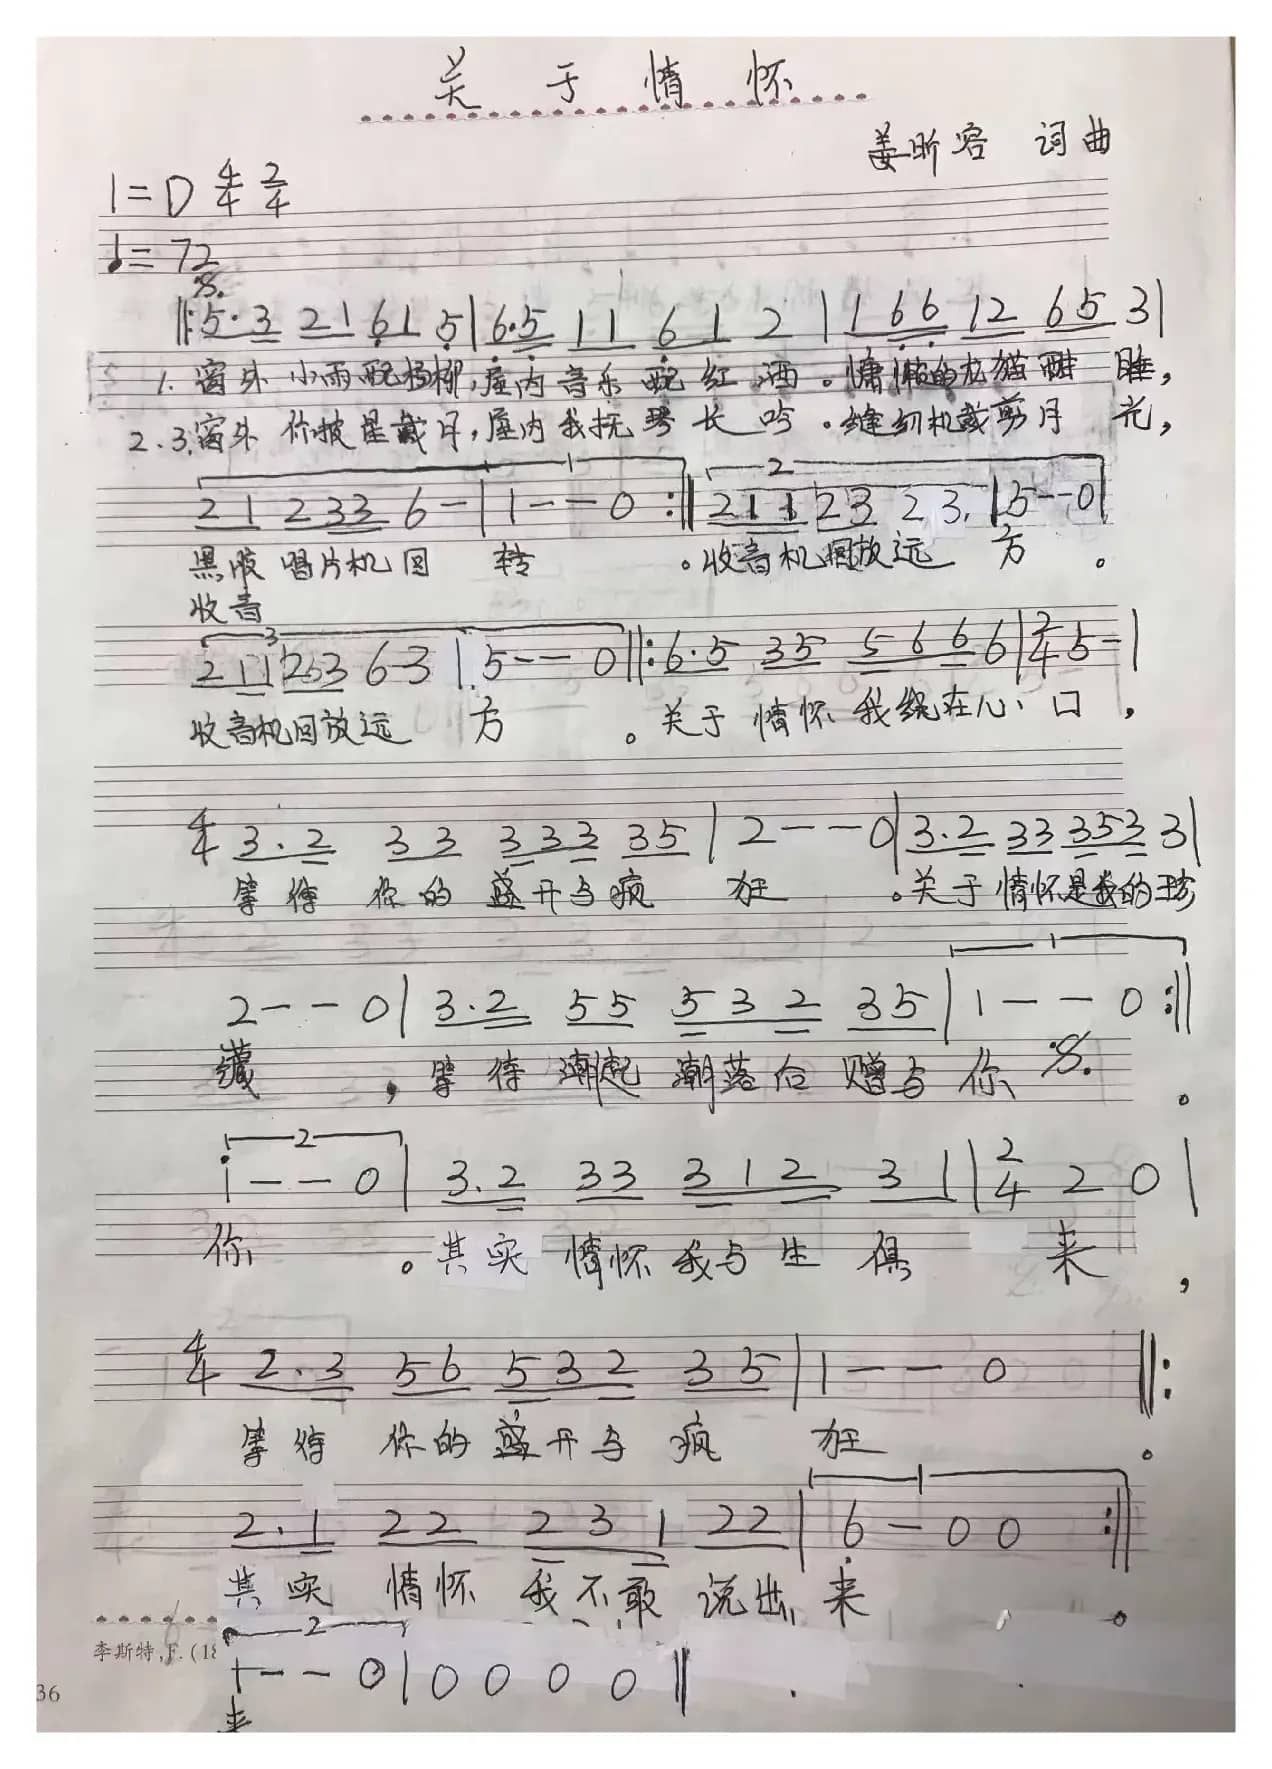 关于情怀
姜昕容 词曲
1=D 4/4 2/4
♩=72
𝄋
‖:5·3 21 61 5|6·5 11 61 2|1 66 12 65 3|
1. 窗外小雨配杨柳,屋内音乐配红酒。慵懒的龙猫酣睡,
2.3.窗外你披星戴月,屋内我抚琴长吟。缝纫机裁剪月光,
1 2
21 233 6-|1--0:‖211 23 23.|5--0|
黑胶唱片机回转。收音机回放远方。
收音
3
211 253 63|5--0‖:6·5 35 566 6|2/4 5-|
收音机回放远方。关于情怀我绕在心口,
4/4 3.2 33 333 35|2--0|3.2 33 353 3|
等待你的盛开与疯狂。关于情怀是我的珍
1
2--0|3.2 55 532 35|1--0:‖
藏,等待潮起潮落后赠与你𝄋。
2
i--0|3.2 33 312 31|2/4 2 0|
你。其实情怀我与生俱来,
4/4 2.3 56 532 35|1--0‖:
等待你的盛开与疯狂。
1
2.1 22 231 22|6-00:‖
其实情怀我不敢说出来。
2
李斯特,F.(18
1--0|0000‖
36
来